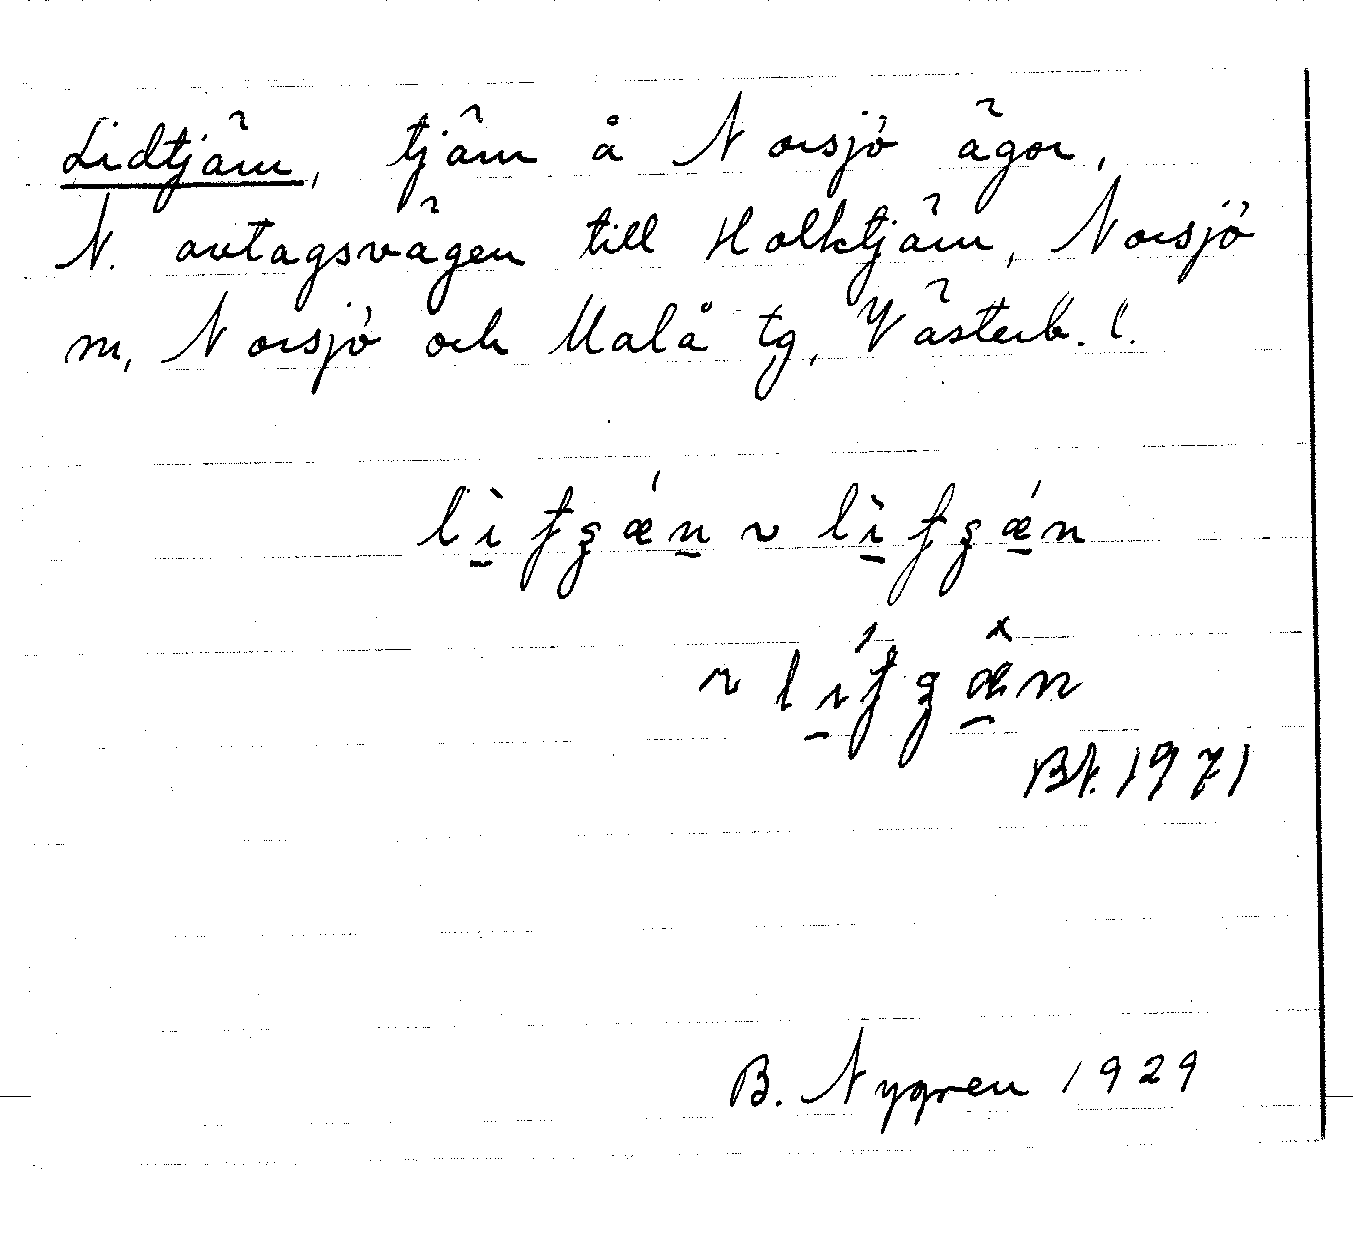 Lidtjärn, tjärn å Norsjö ägor,
N. avtagsvägen till Holktjärn, Norsjö
sn, Norsjö och Malå tg, Västerb. l.
BN. 1971
B. Nygren 1929